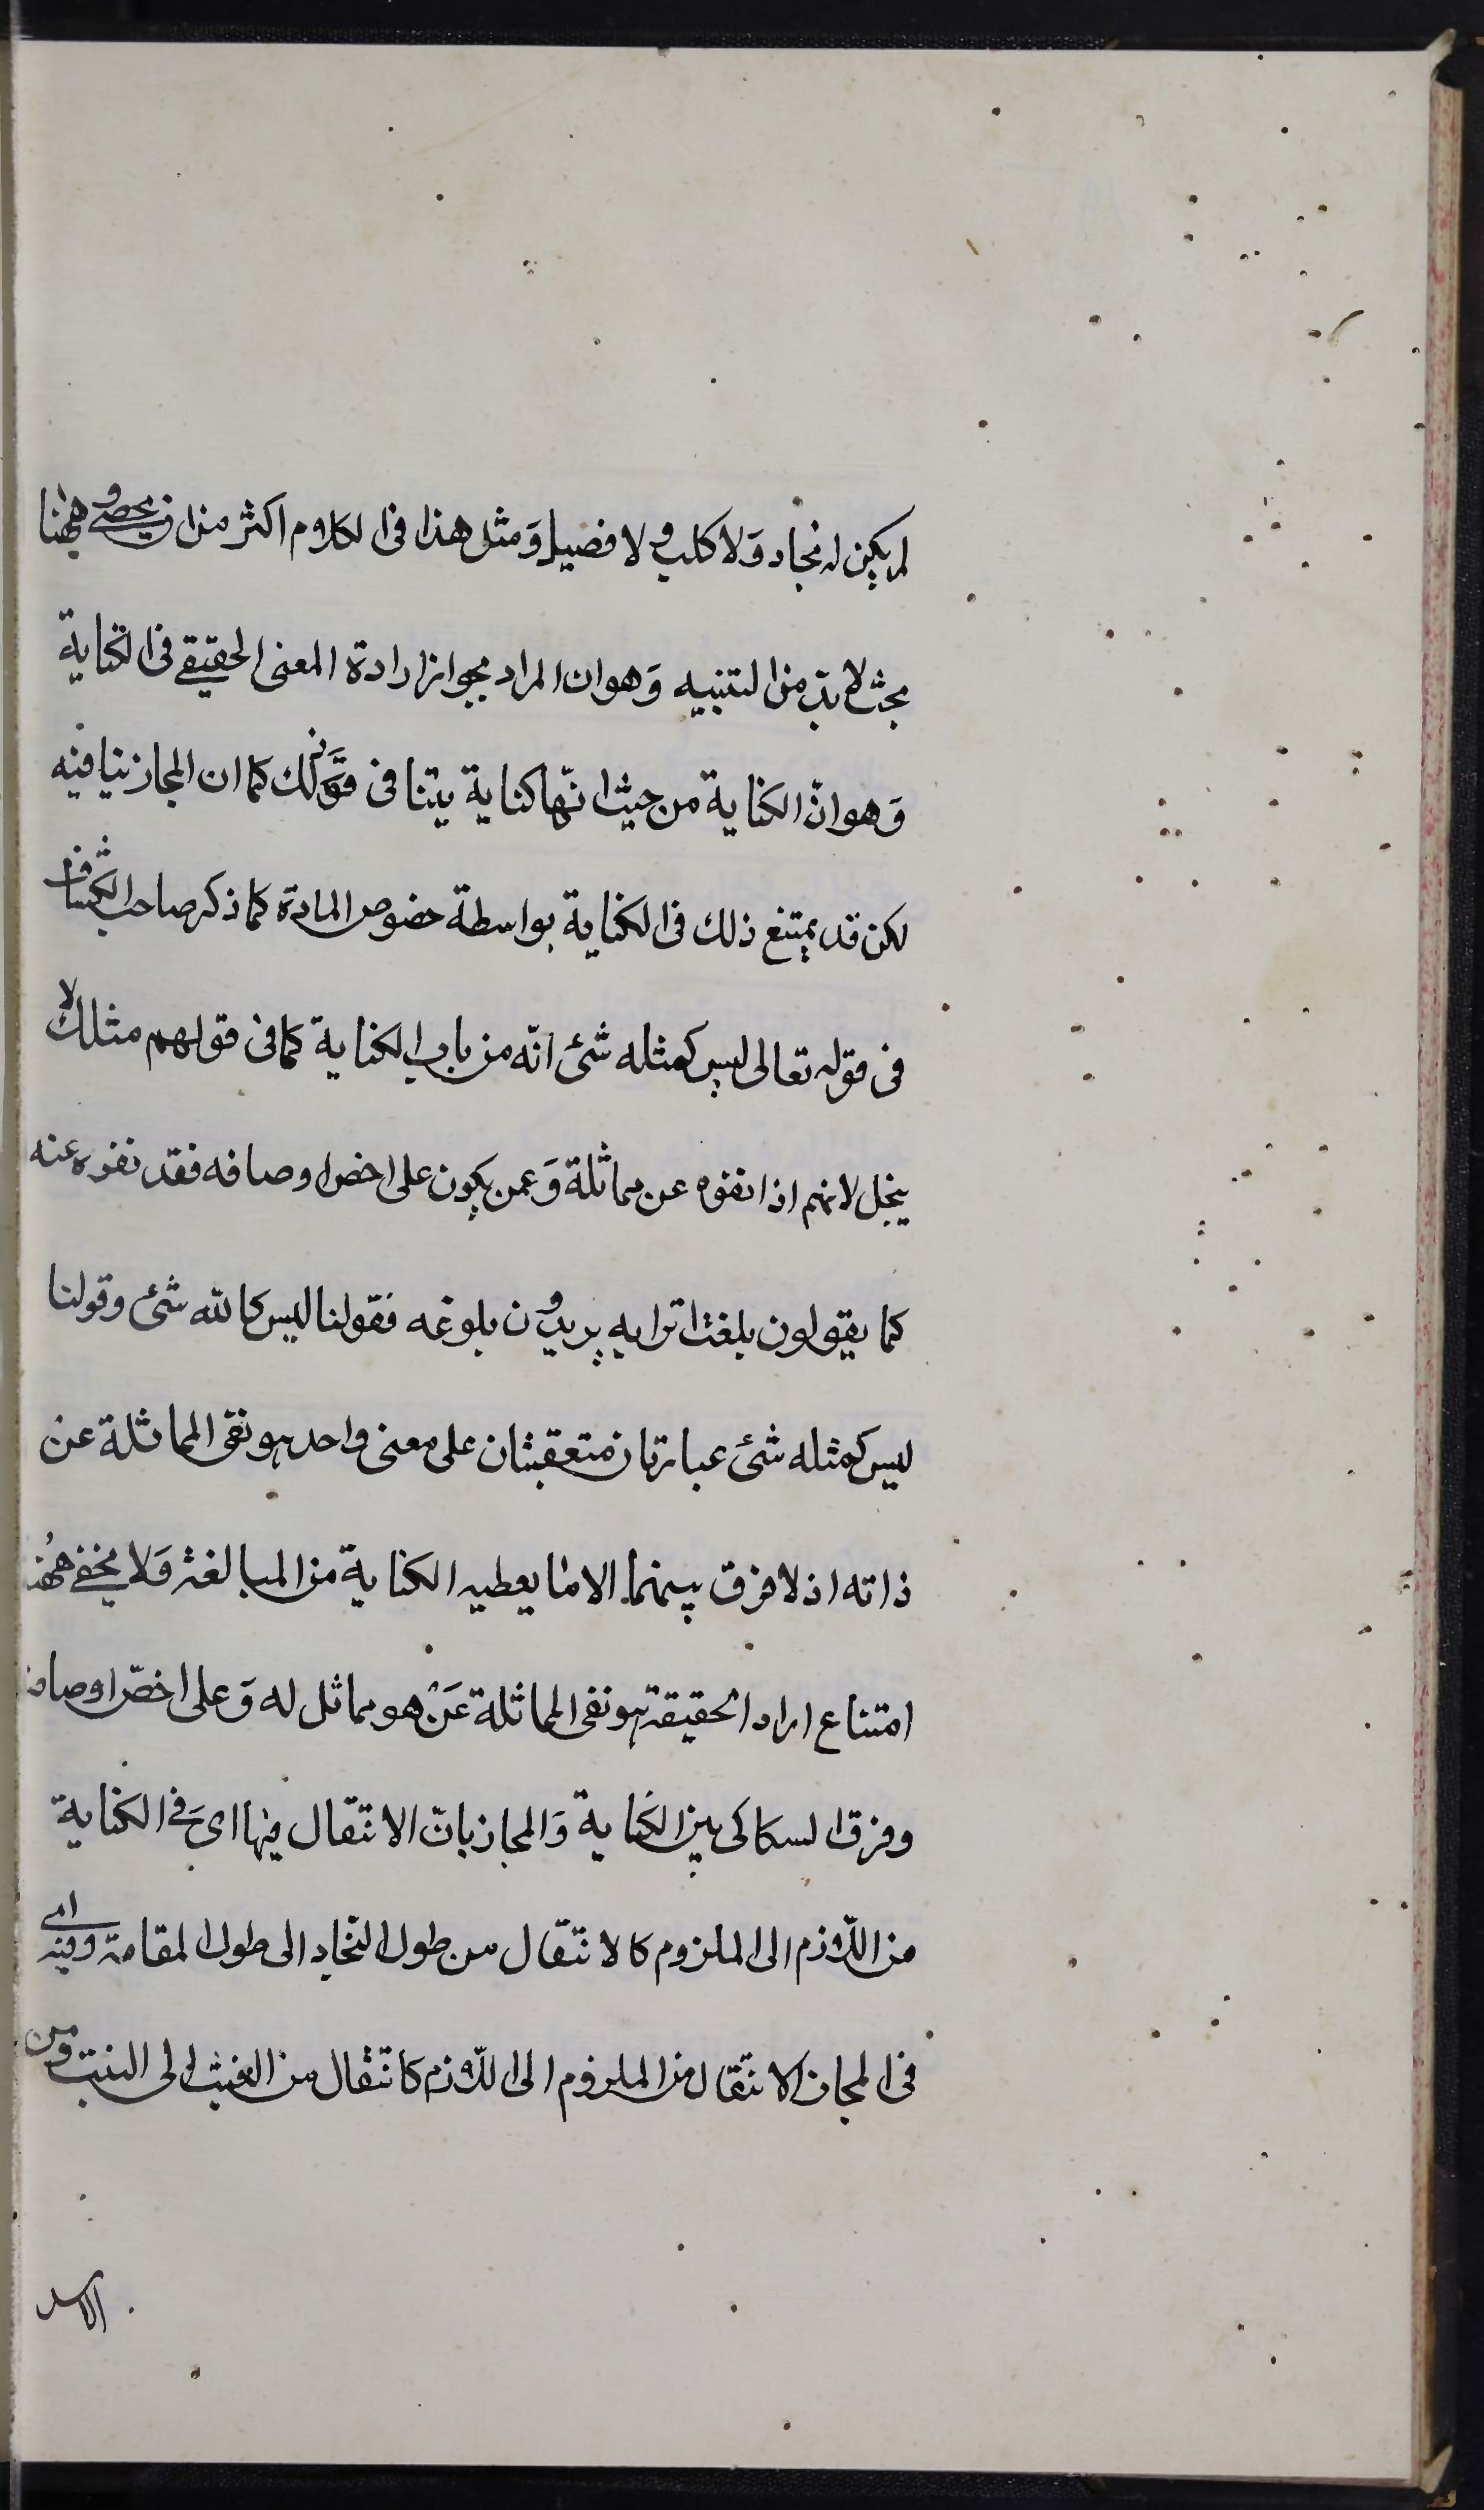 لم يكن له نجاد وَلا كلب ولا فصيل وَمثل هذا فى الكلام اكثر من ان يحصى وههنا
بحث لا بدّ من التنبيه وَهو ان المراد بجواز ارادة المعنى الحقيقى فى الكناية
وَهو انّ الكناية من حيث انّها كناية يتنافى ذلك كما ان المجاز ينافيه
لكن قد يمتنع ذلك فى الكناية بواسطة خصوص المادة كما ذكر صاحب الكشاف
فى قوله تعالى ليس كمثله شئ انّه من باب الكناية كما فى قولهم مثلك لا
يبخل لانهم اذا نفوه عن مماثلة وَعمن يكون على اخص اوصافه فقد نفوه عنه
كما يقولون بلغت اترابه يريدون بلوغه فقولنا ليس كالله شئ وقولنا
ليس كمثله شئ عبارتان متعقبتان على معنى واحد هو نفى المماثلة عن
ذاته اذ لا فرق بينهما الا ما يعطيه الكناية من المبالغة وَلا يخفى ههُنا
امتناع اراد الحقيقة هو نفى المماثلة عَن هو مماثل له وَعلى اخصّ اوصافه
وفرق السكاكى بين الكناية وَالمجاز بانّ الانتقال فيها اى فى الكناية
من اللازم الى الملزوم كالانتقال من طول النجاد الى طول المقامة وفيه اى
فى المجاز الانتقال من الملزوم الى اللازم كانتقال من الغيث الى النبت ومن
الاسد